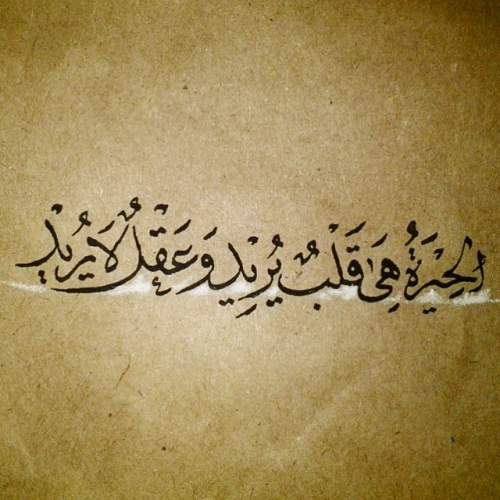 الحِيْرَةُ هِيَ قَلْبٌ يُرِيْدِ وَ عَقْلٌ لَا يُرِيْدِ